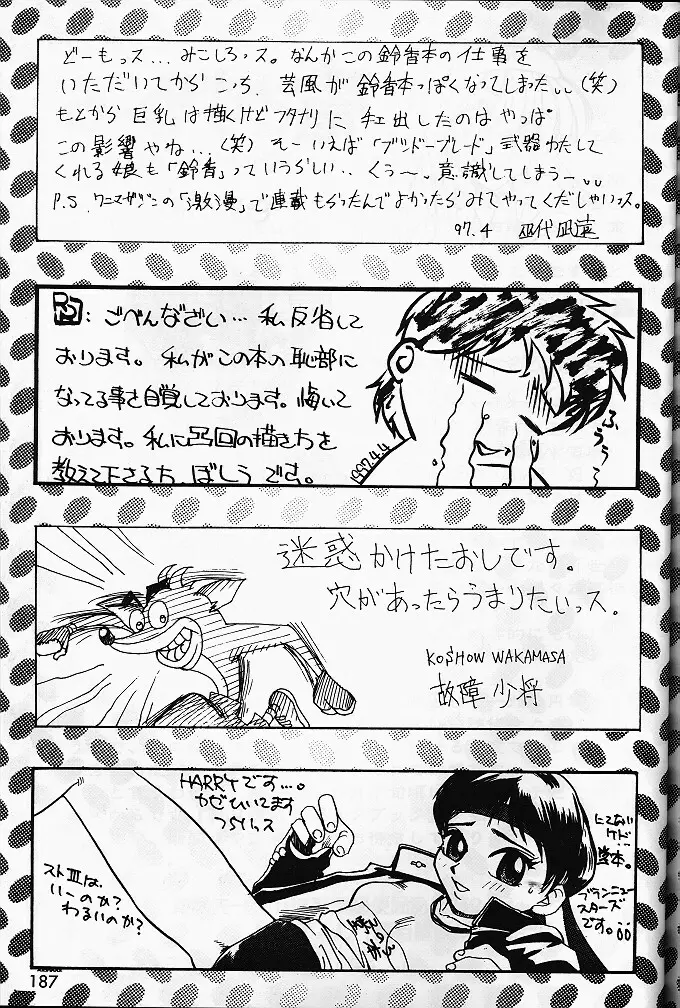 どーもっス…みこしろっス。なんかこの鈴香本の仕事を
いただいてからこっち、芸風が鈴香本っぽくなってしまった(笑)
もとから巨乳は描くけどフタナリに手出したのはやっぱ
この影響やね…(笑)そーいえば「ブシドーブレード」武器わたして
くれる娘も「鈴香」っていうらしい‥くぅ〜、意識してしまうー
P.S ワニマガジンの「激漫」で連載もらったんでよかったらみてやってくだしゃいっス。
97.4
:ごべんなざい…私反省して
おります。私がこの本の恥部に
なってる事を自覚しております。悔いて
おります。私に凸凹の描き方を
教えて下さる方、ぼしうです。
1997.4.4
ふぅぅ〜
迷惑かけたおしです。
穴があったらうまりたいっス。
KOSHOW WAKAMASA
故障少将
HARRYです…。
かぜひいてます
つらいっス
ストⅢは
いーのか?
わるいのか?
にてない
ケド
ブランニュー
スターズ
です。
187